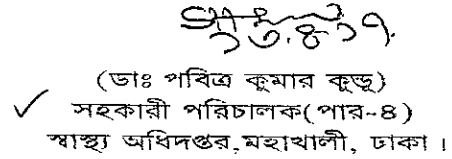 ১৩.৪.১৭.
(ডাঃ পবিত্র কুমার কুন্ডু)
✓ সহকারী পরিচালক(পার-৪)
স্বাস্থ্য অধিদপ্তর,মহাখালী, ঢাকা।